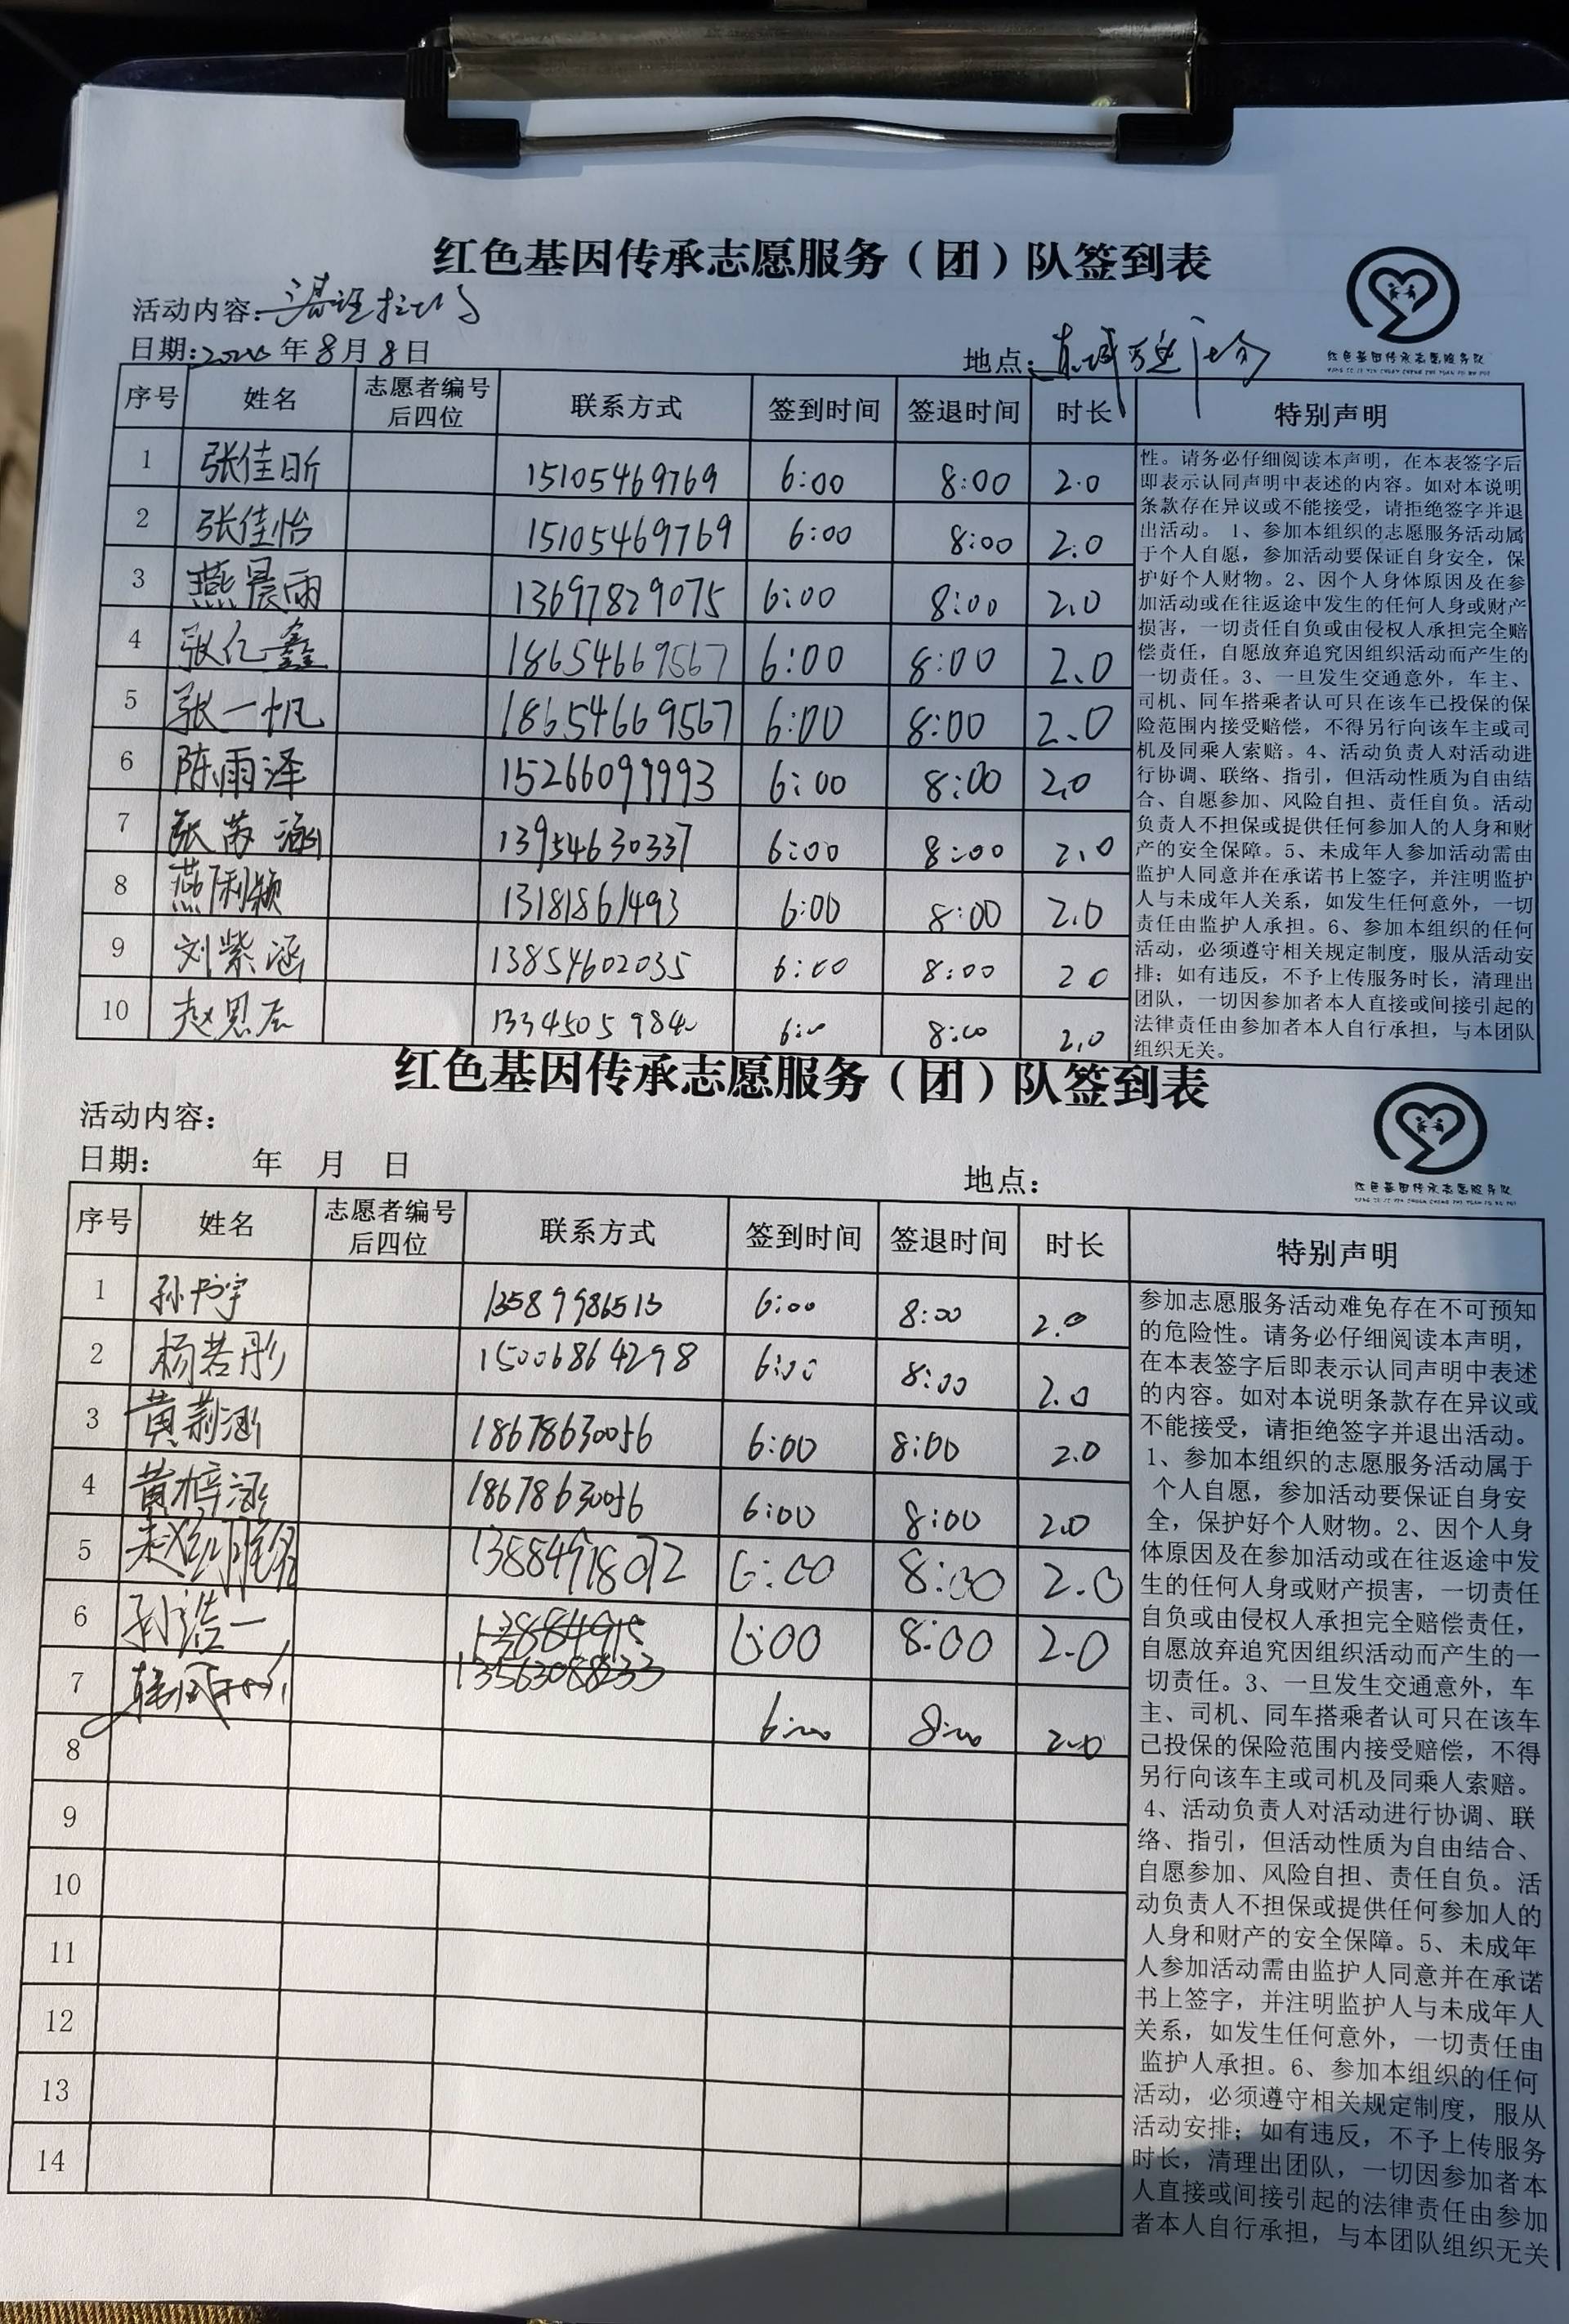 红色基因传承志愿服务（团）队签到表
活动内容：清理垃圾
日期：年8月8日
地点：
红色基因传承志愿服务队
序号 姓名 志愿者编号后四位 联系方式 签到时间 签退时间 时长 特别声明
1 张佳昕 15105469769 6:00 8:00 2.0
2 张佳怡 15105469769 6:00 8:00 2.0
3 燕晨雨 13697829075 6:00 8:00 2.0
4 张亿鑫 18654669567 6:00 8:00 2.0
5 张一帆 18654669567 6:00 8:00 2.0
6 陈雨泽 15266099993 6:00 8:00 2.0
7 张苡涵 13954630337 6:00 8:00 2.0
8 燕俐颖 13181861493 6:00 8:00 2.0
9 刘紫涵 13854602035 6:00 8:00 20
10 赵思辰 6:00 8:00 2.0
性。请务必仔细阅读本声明，在本表签字后
即表示认同声明中表述的内容。如对本说明
条款存在异议或不能接受，请拒绝签字并退
出活动。 1、参加本组织的志愿服务活动属
于个人自愿，参加活动要保证自身安全，保
护好个人财物。2、因个人身体原因及在参
加活动或在往返途中发生的任何人身或财产
损害，一切责任自负或由侵权人承担完全赔
偿责任，自愿放弃追究因组织活动而产生的
一切责任。3、一旦发生交通意外，车主、
司机、同车搭乘者认可只在该车已投保的保
险范围内接受赔偿，不得另行向该车主或司
机及同乘人索赔。4、活动负责人对活动进
行协调、联络、指引，但活动性质为自由结
合、自愿参加、风险自担、责任自负。活动
负责人不担保或提供任何参加人的人身和财
产的安全保障。5、未成年人参加活动需由
监护人同意并在承诺书上签字，并注明监护
人与未成年人关系，如发生任何意外，一切
责任由监护人承担。6、参加本组织的任何
活动，必须遵守相关规定制度，服从活动安
排；如有违反，不予上传服务时长，清理出
团队，一切因参加者本人直接或间接引起的
法律责任由参加者本人自行承担，与本团队
组织无关。
红色基因传承志愿服务（团）队签到表
活动内容：
日期： 年 月 日
地点：
红色基因传承志愿服务队
序号 姓名 志愿者编号后四位 联系方式 签到时间 签退时间 时长 特别声明
1 孙书宇 13589986513 6:00 8:00 2.0
2 杨若彤 15006864298 6:00 8:00 2.0
3 黄莉涵 18678630056 6:00 8:00 2.0
4 黄梓涵 18678630056 6:00 8:00 2.0
5 13884918072 6:00 8:00 2.0
6 孙浩一 13884915 6:00 8:00 2.0
7 13563088233 6:00 8:00 2.0
8
9
10
11
12
13
14
参加志愿服务活动难免存在不可预知
的危险性。请务必仔细阅读本声明，
在本表签字后即表示认同声明中表述
的内容。如对本说明条款存在异议或
不能接受，请拒绝签字并退出活动。
1、参加本组织的志愿服务活动属于
个人自愿，参加活动要保证自身安
全，保护好个人财物。2、因个人身
体原因及在参加活动或在往返途中发
生的任何人身或财产损害，一切责任
自负或由侵权人承担完全赔偿责任，
自愿放弃追究因组织活动而产生的一
切责任。3、一旦发生交通意外，车
主、司机、同车搭乘者认可只在该车
已投保的保险范围内接受赔偿，不得
另行向该车主或司机及同乘人索赔。
4、活动负责人对活动进行协调、联
络、指引，但活动性质为自由结合、
自愿参加、风险自担、责任自负。活
动负责人不担保或提供任何参加人的
人身和财产的安全保障。5、未成年
人参加活动需由监护人同意并在承诺
书上签字，并注明监护人与未成年人
关系，如发生任何意外，一切责任由
监护人承担。6、参加本组织的任何
活动，必须遵守相关规定制度，服从
活动安排；如有违反，不予上传服务
时长，清理出团队，一切因参加者本
人直接或间接引起的法律责任由参加
者本人自行承担，与本团队组织无关